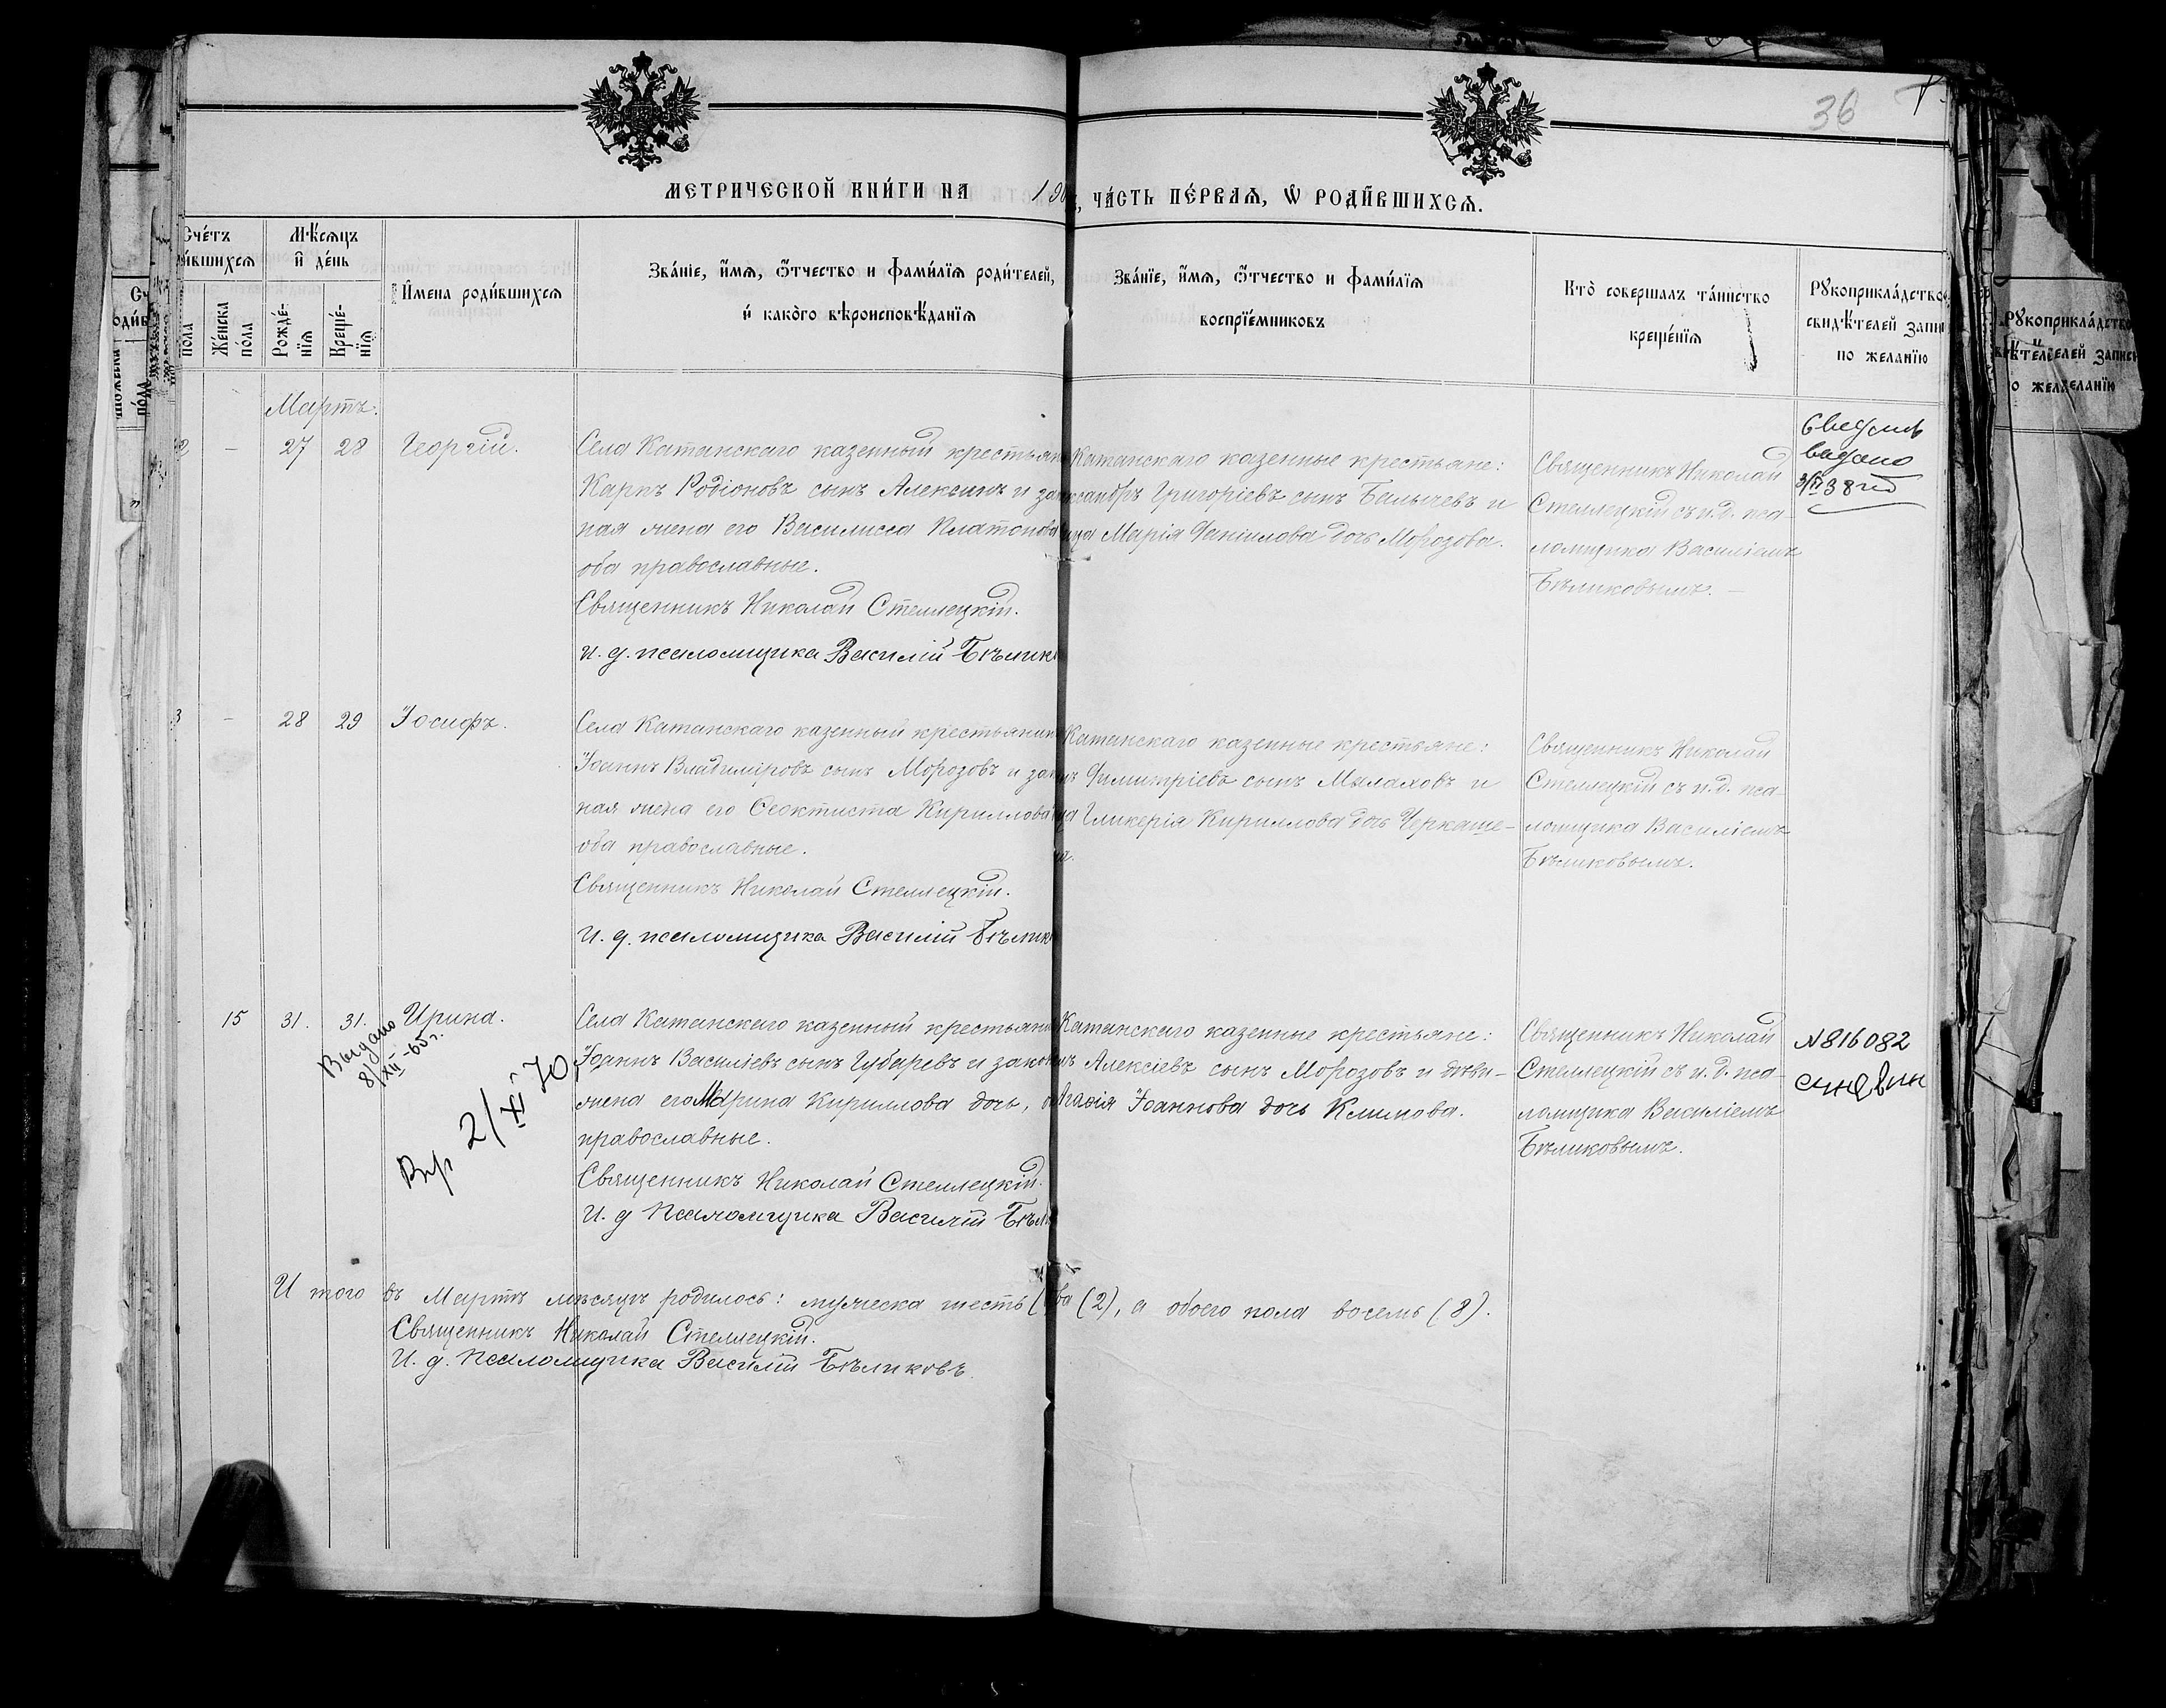 36
МЕТРИЧЕСКОЙ КНИ́ГИ НА 190
, ЧА́СТЬ ПЕ́РВАЯ, Ѡ РОДИ́ВШИХСЯ.
Сче́тъ
и́вшихся
Мѣ́сяцъ
и̂ де́нь
пола
Же́нска по́ла
Рожде́нїя
Креще́нїя
И̂мена роди́вшихся
Зва́нїе, и̂́мя, ѻ̂́тчество и фами́лїя роди́телей,
и̂ како́го вѣроисповѣ́данїя
Зва́нїе, и̂́мя, ѻ̂́тчество и фами́лїя
воспрїе́мниковъ
Кто̀ совершалъ та́инство
креще́нїя
Рꙋкоприкла́дство
свидѣ́телей запи
по желанїю
Мартъ.
2 – 27 28 Георгій.
Села Катанскаго казенный крестьян
Карпъ Родіоновъ сынъ Алексинъ и зак
ная жена его Василисса Платонова
оба православные.
Священникъ Николай Стеллецкій.
и. д. псаломщика Василій Бѣлик
Катанскаго казенные крестьяне:
ксандръ Григоріевъ сынъ Балычевъ и
ица Марія Даніилова дочь Морозова.
Священникъ Николай
Стеллецкій съ и.д. пса-
ломщика Василіемъ
Бѣликовымъ. –
выдано
38 г.
3 – 28 29 Іосифъ.
Села Катанскаго казенный крестьянин
Іоаннъ Владиміровъ сынъ Морозовъ и зак
ная жена его Ѳеоктиста Кириллова
оба православные.
Священникъ Николай Стеллецкій.
И. д. псаломщика Василій Бѣлик
Катанскаго казенные крестьяне:
Димитріевъ сынъ Малаховъ и
ца Гликерія Кириллова дочь Черкаше-
на.
Священникъ Николай
Стеллецкій съ и.д. пса-
ломщика Василіемъ
Бѣликовымъ.
15 31. 31. Ирина.
Выдано
8/XII-65 г.
2/XI 70
Села Катанскаго казенный крестьянин
Іоаннъ Василіевъ сынъ Губаревъ и закон
жена его Марина Кириллова дочь, о
православные.
Священникъ Николай Стеллецкій.
И. д псаломщика Василій Бѣл
Катанскаго казенные крестьяне:
Алексіевъ сынъ Морозовъ и дѣви-
Агаѳія Іоаннова дочь Климова.
Священникъ Николай
Стеллецкій съ и. д. пса-
ломщика Василіемъ
Бѣликовымъ.
№816082
И того въ Мартѣ мѣсяцѣ родилось: мужеска шесть (
ва (2), а обоего пола восемь (8).
Священникъ Николай Стеллецкій.
И. д. псаломщика Василій Бѣликовъ.